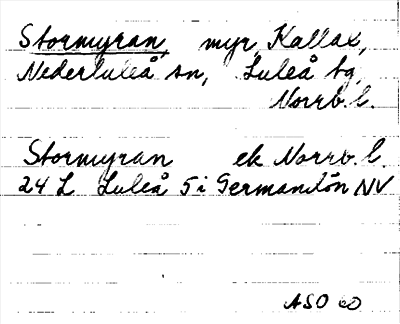 Stormyran, myr, Kallax,
Nederluleå sn, Luleå tg,
Norrb. l.
Stormyran ek Norrb. l.
24 L Luleå 5 i Germandön NV
ASO 60